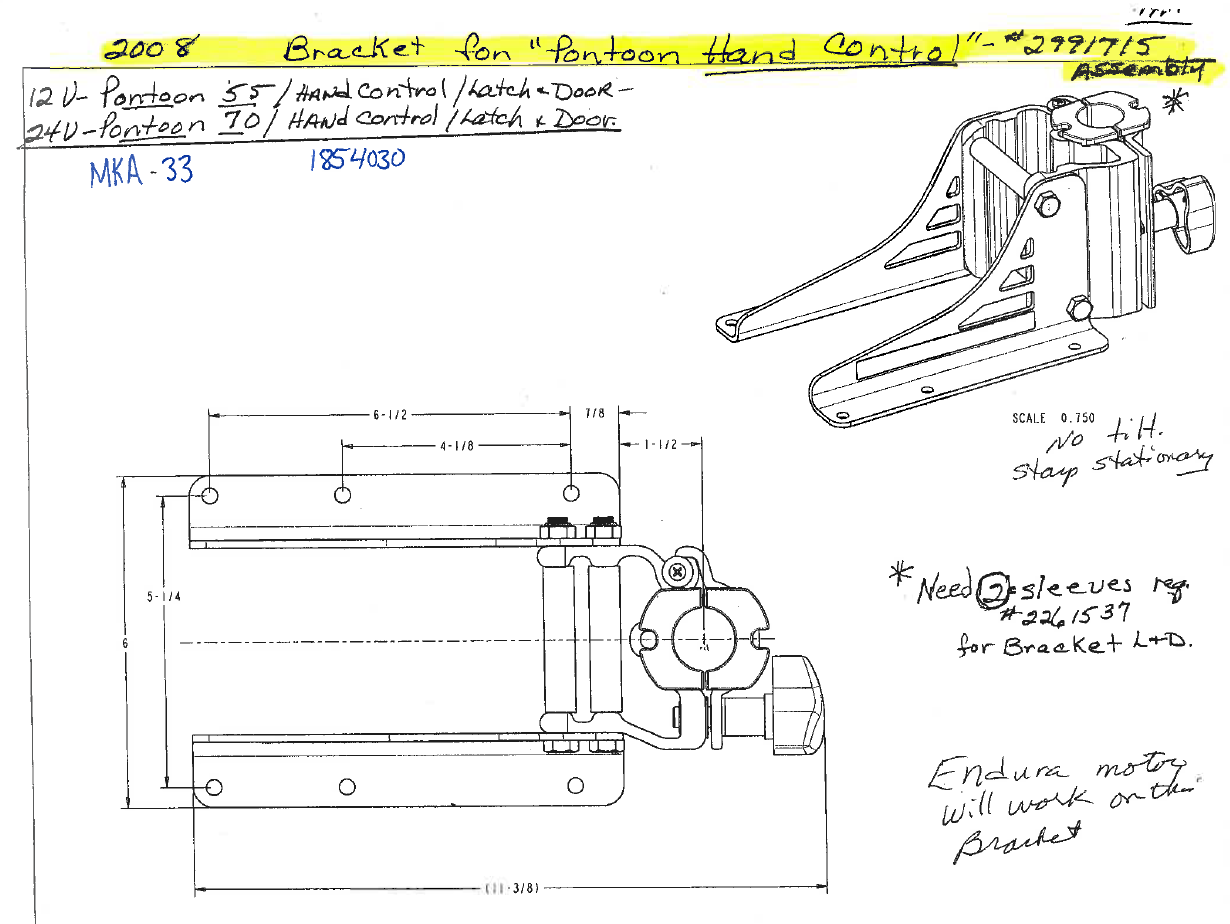 2008 Bracket for "Pontoon Hand Control" - #2991715
Assembly
*
12V- Pontoon 55 / HAND Control / Latch & DOOR -
24V-Pontoon 70 / HAND Control / Latch & Door.
MKA - 33 1854030
SCALE 0.750
No tilt.
stay stationary
6-1/2
7/8
4-1/8
1-1/2
5-1/4
6
(11-3/8)
* Need 2 sleeves req.
#2261537
for Bracket L+D.
Endura motor
will work on this
Bracket